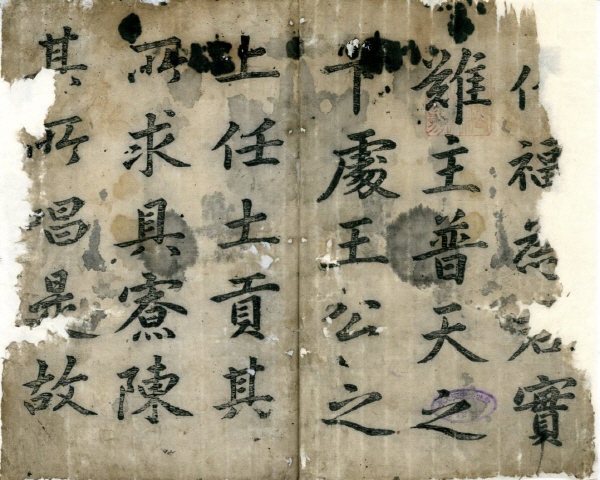 作福為君實
難主普天之
下處王公之
上任土貢其
所求具寮陳
其所唱是故